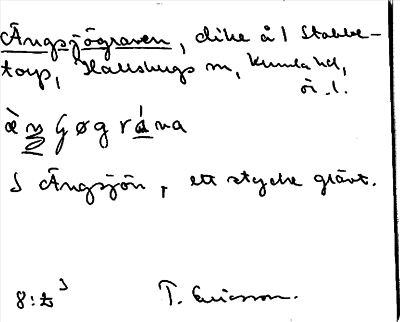 Ängsjögraven, dike å 1 Stabbe-
torp, Hallsbergs sn, Kumla hd,
ör. l.
æ̀ŋʃøgrána
S Ängsjön, ett stycke grävt.
8:
T. Ericsson.